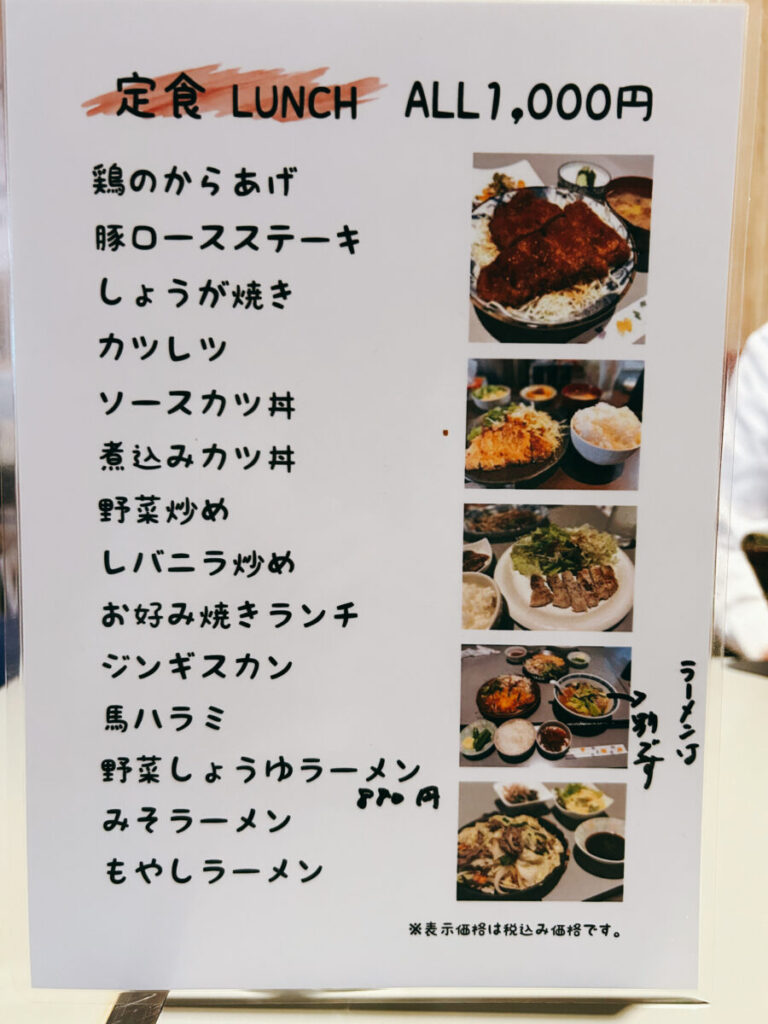 定食 LUNCH ALL1,000円
鶏のからあげ
豚ロースステーキ
しょうが焼き
カツレツ
ソースカツ丼
煮込みカツ丼
野菜炒め
レバニラ炒め
お好み焼きランチ
ジンギスカン
馬ハラミ
野菜しょうゆラーメン
880円
みそラーメン
もやしラーメン
ラーメンは
別です
※表示価格は税込み価格です。